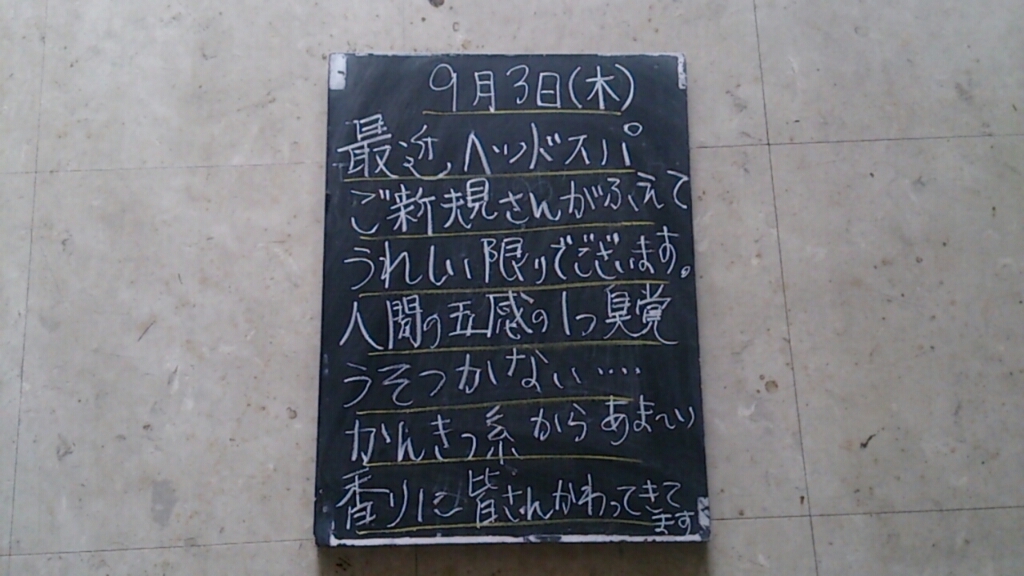 9月3日(木)
最近ヘッドスパ
ご新規さんがふえて
うれしい限りでございます。
人間の五感の1つ臭覚
うそつかない....
かんきつ系からあま〜い
香りに皆さんかわってきて
ます